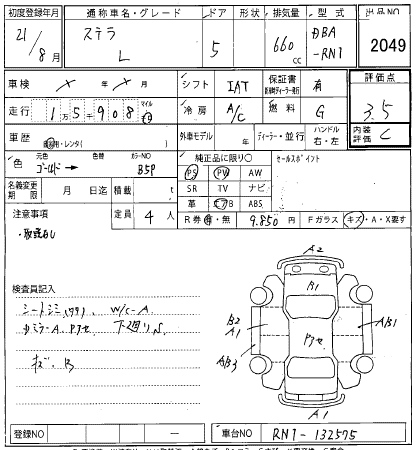 初度登録年月 通称車名・グレード ドア 形状 排気量 型式 出品NO
21/8月 ステラ L 5 660cc DBA-RN1 2049
車検 × 年 × 月 シフト IAT 保証書 有 評価点
走行 1万5千908 マイル km 冷房 A/C 燃料 G 3.5
車歴 自家用・レンタ( ) 外車モデル 年 ディーラー・並行 ハンドル 右・左 内装評価 C
色 元色 ゴールド → 色替 カラーNO B5P 純正品に限り○ セールスポイント
PS PW AW
名義変更期限 月 日迄 積載 t SR TV ナビ
革 エアB ABS
注意事項 定員 4人 R券 有・無 9,850円 Fガラス キズ・A・X要す
・取説なし
検査員記入
シートシミ W/C-A
下廻りS
A2
A1
B2
A1
AB3
AB1
A1
登録NO ー 車台NO RN1-132575